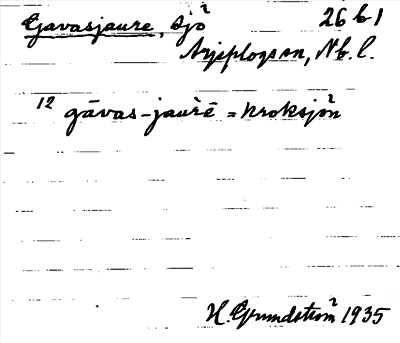 Gavasjaure, sjö 26 b 1
Arjeplogs sn, Nb. l.
12 gāvas-jaurē = kroksjön
H. Grundström 1935